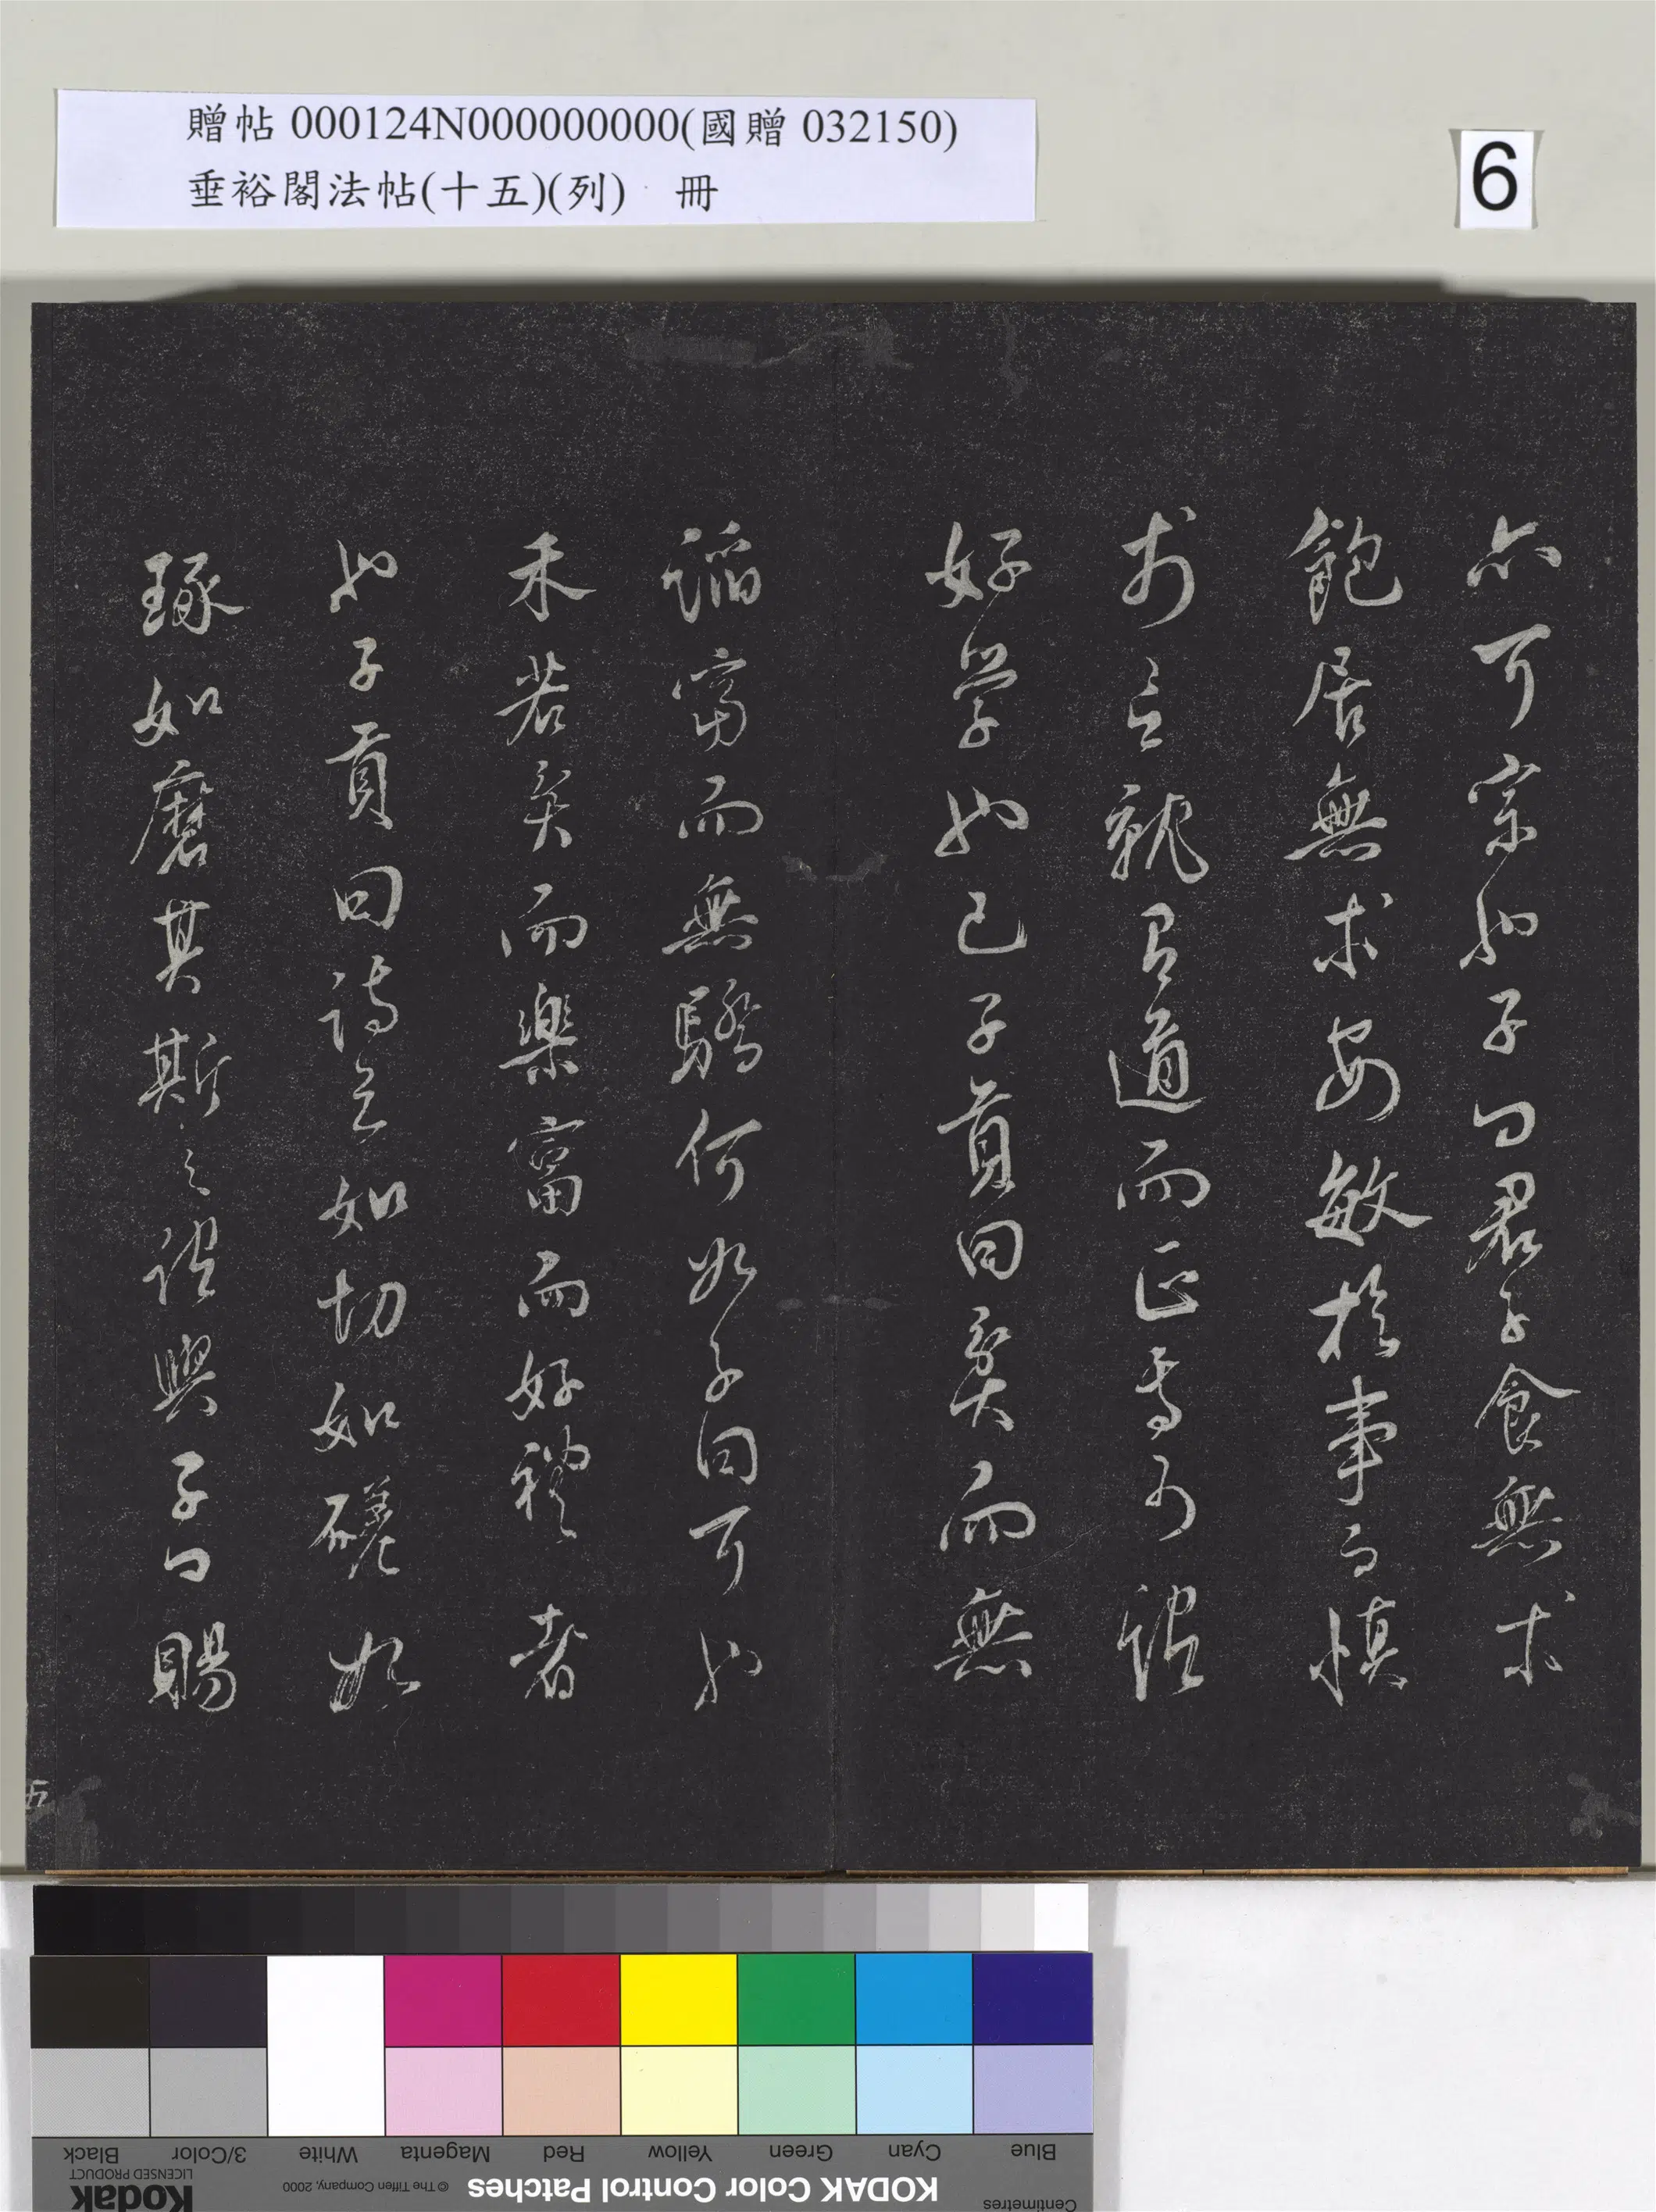 贈帖 000124N000000000(國贈 032150)
垂裕閣法帖(十五)(列) 冊
6
亦可宗也子曰君子食無求
飽居無求安敏於事而慎
於言就有道而正焉可謂
好学也已子貢曰貧而無
諂富而無驕何如子曰可也
未若貧而樂富而好禮者
也子貢曰詩云如切如磋如
琢如磨其斯之謂與子曰賜
Blue Cyan Green Yellow Red Magenta White 3/Color Black
Centimetres
KODAK Color Control Patches
© The Tiffen Company, 2000
LICENSED PRODUCT
Kodak